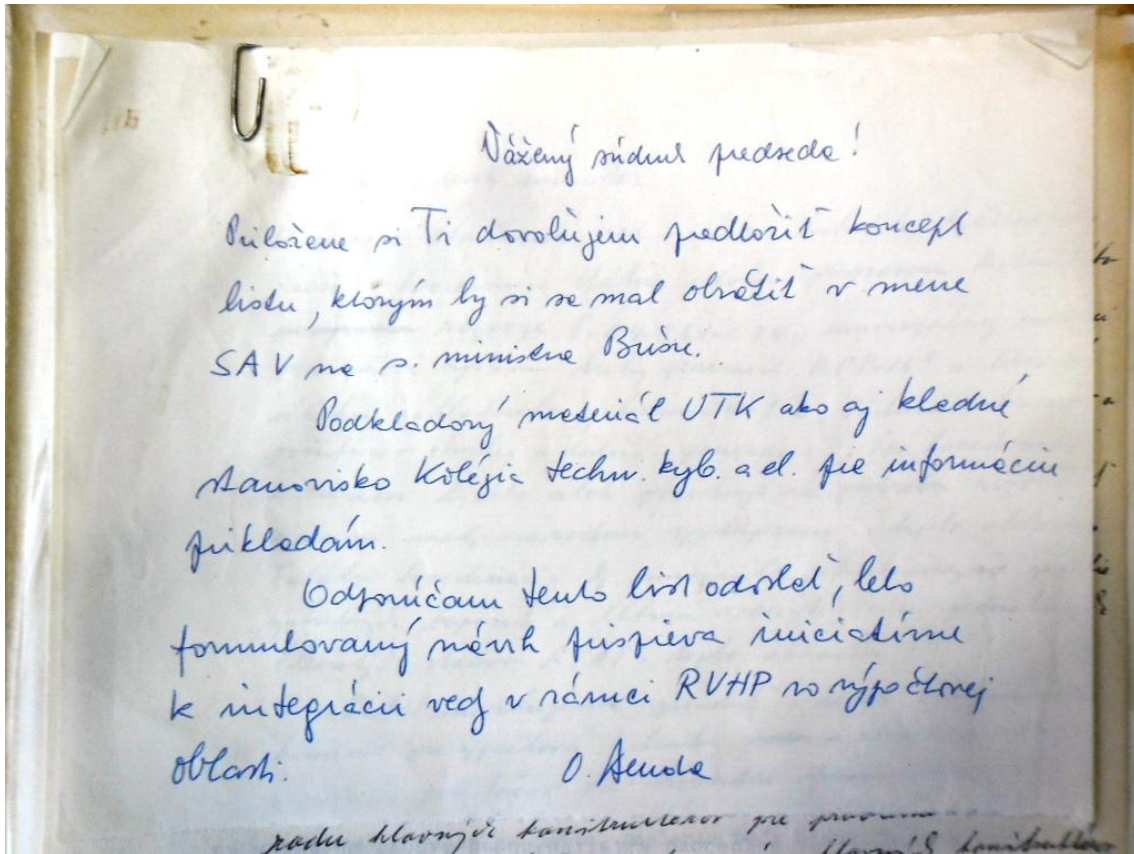 Vážený súdruh predseda!
Priložene si Ti dovoľujem predložiť koncept
listu, ktorým by si sa mal obrátiť v mene
SAV na s. ministra
Podkladový materiál UTK ako aj kladné
stanovisko Kolégia techn. kyb. a el. pre informáciu
prikladám.
Odporúčam tento list odoslať, lebo
formulovaný návrh prispieva iniciatívne
k integrácii vedy v rámci RVHP vo výpočtovej
oblasti.
O. Benda
radu hlavných konštruktérov pre
hlavných konštruktérov